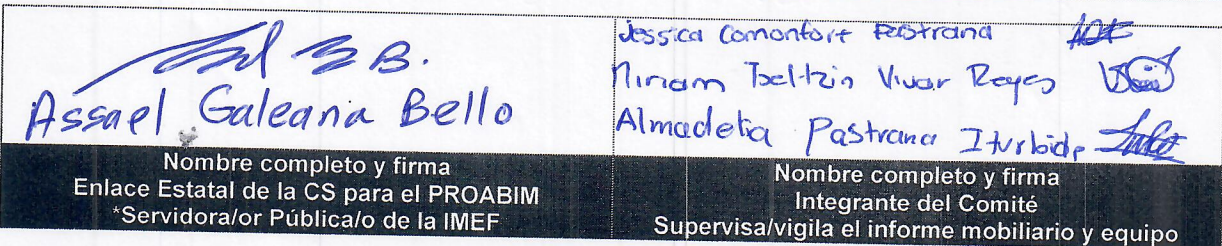 Assael Galeana Bello
Nombre completo y firma
Enlace Estatal de la CS para el PROABIM
*Servidora/or Pública/o de la IMEF
Jessica Comonfort Pastrana
Miriam Itzeltzin Vivar Reyes
Almadelia Pastrana Iturbide
Nombre completo y firma
Integrante del Comité
Supervisa/vigila el informe mobiliario y equipo